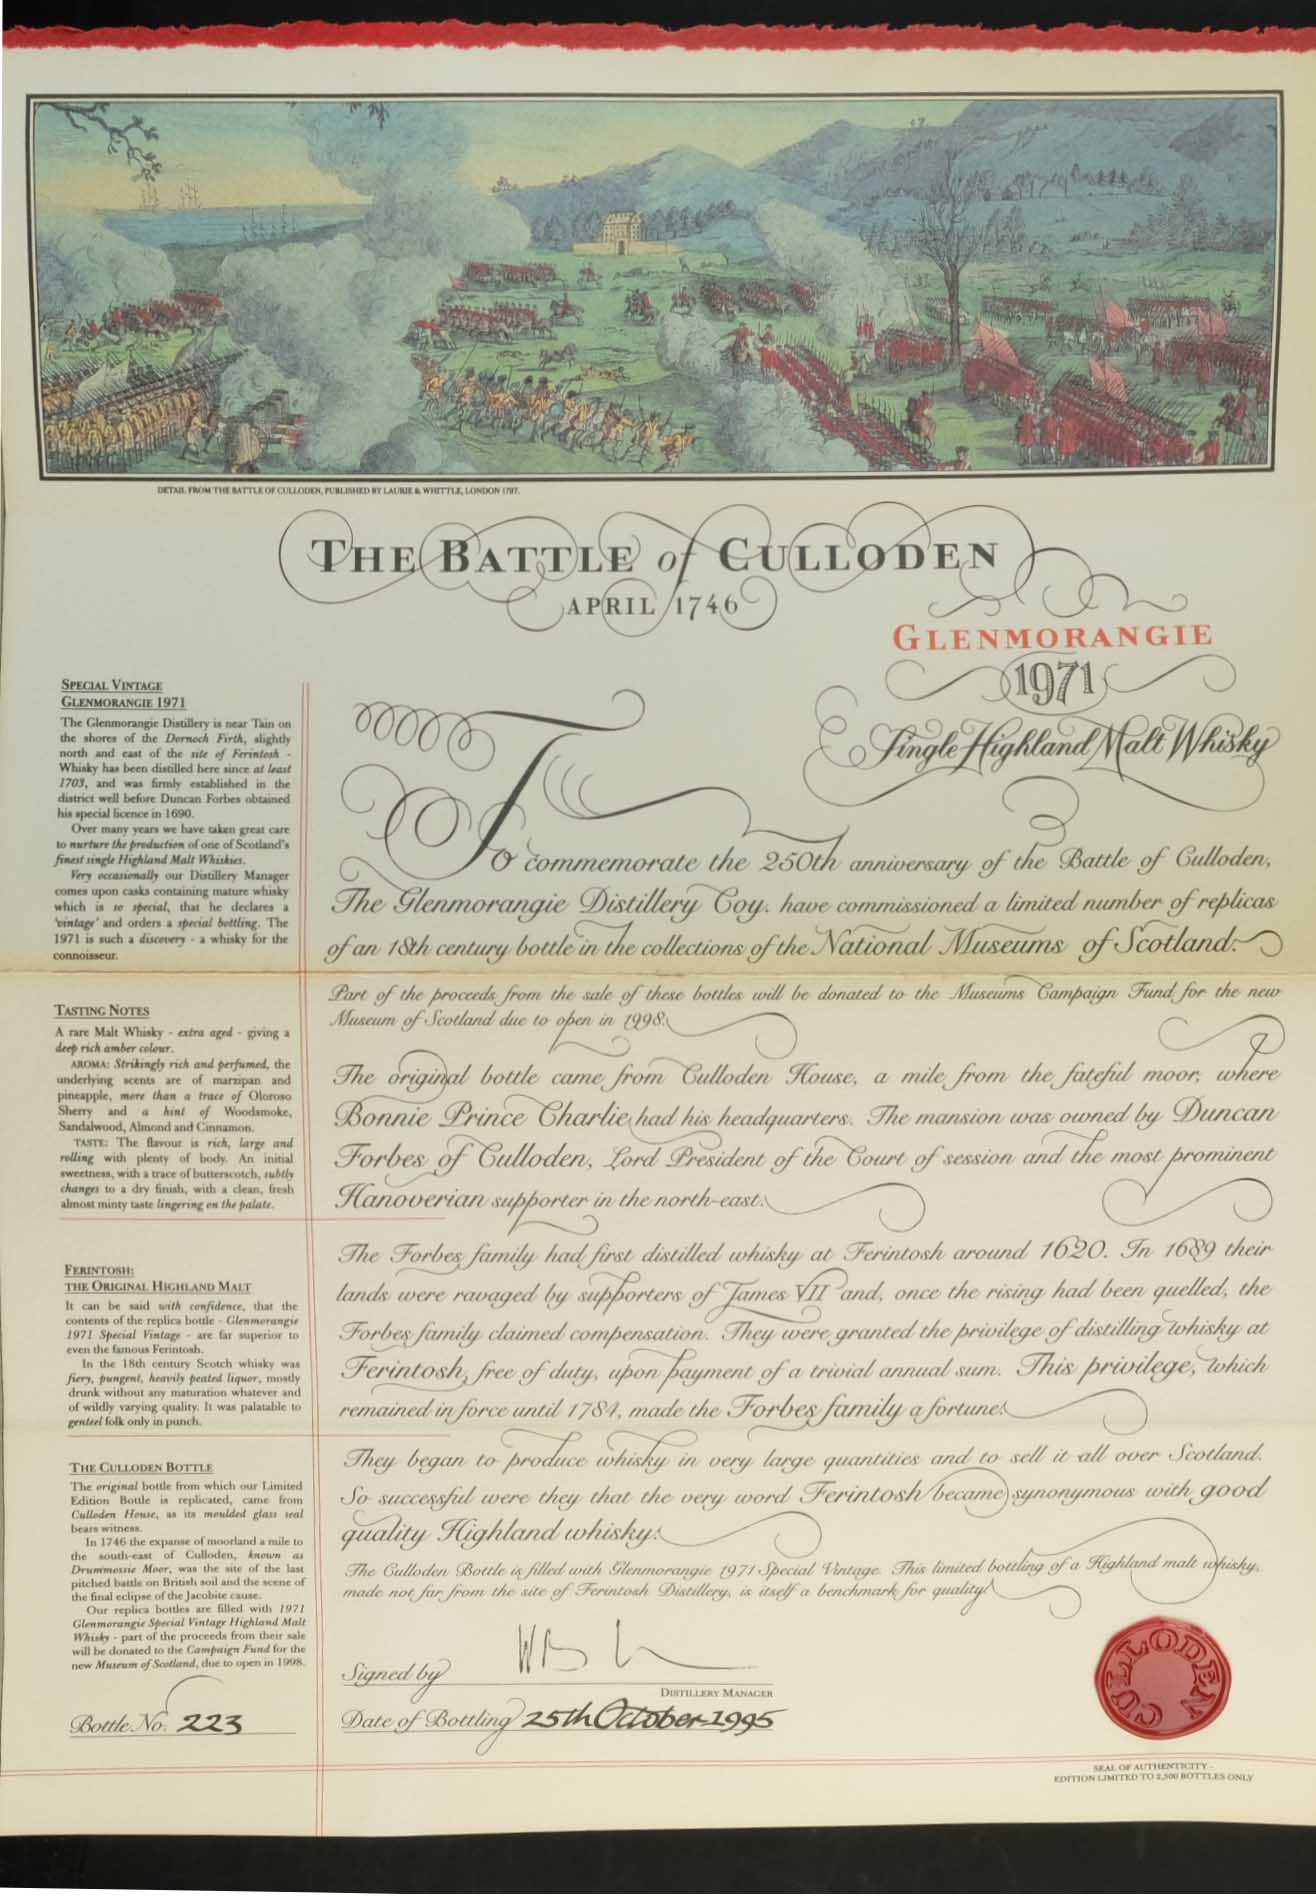 DETAIL FROM THE BATTLE OF CULLODEN, PUBLISHED BY LAURIE & WHITTLE, LONDON 1797.
THE BATTLE of CULLODEN
APRIL 1746
GLENMORANGIE
1971
Single Highland Malt Whisky
SPECIAL VINTAGE
GLENMORANGIE 1971
The Glenmorangie Distillery is near Tain on
the shores of the Dornoch Firth, slightly
north and east of the site of Ferintosh -
Whisky has been distilled here since at least
1703, and was firmly established in the
district well before Duncan Forbes obtained
his special licence in 1690.
Over many years we have taken great care
to nurture the production of one of Scotland's
finest single Highland Malt Whiskies.
Very occasionally our Distillery Manager
comes upon casks containing mature whisky
which is so special, that he declares a
'vintage' and orders a special bottling. The
1971 is such a discovery - a whisky for the
connoisseur.
TASTING NOTES
A rare Malt Whisky - extra aged - giving a
deep rich amber colour.
AROMA: Strikingly rich and perfumed, the
underlying scents are of marzipan and
pineapple, more than a trace of Oloroso
Sherry and a hint of Woodsmoke,
Sandalwood, Almond and Cinnamon.
TASTE: The flavour is rich, large and
rolling with plenty of body. An initial
sweetness, with a trace of butterscotch, subtly
changes to a dry finish, with a clean, fresh
almost minty taste lingering on the palate.
FERINTOSH:
THE ORIGINAL HIGHLAND MALT
It can be said with confidence, that the
contents of the replica bottle - Glenmorangie
1971 Special Vintage - are far superior to
even the famous Ferintosh.
In the 18th century Scotch whisky was
fiery, pungent, heavily peated liquor, mostly
drunk without any maturation whatever and
of wildly varying quality. It was palatable to
genteel folk only in punch.
THE CULLODEN BOTTLE
The original bottle from which our Limited
Edition Bottle is replicated, came from
Culloden House, as its moulded glass seal
bears witness.
In 1746 the expanse of moorland a mile to
the south-east of Culloden, known as
Drummossie Moor, was the site of the last
pitched battle on British soil and the scene of
the final eclipse of the Jacobite cause.
Our replica bottles are filled with 1971
Glenmorangie Special Vintage Highland Malt
Whisky - part of the proceeds from their sale
will be donated to the Campaign Fund for the
new Museum of Scotland, due to open in 1998.
Bottle No. 223
To commemorate the 250th anniversary of the Battle of Culloden,
The Glenmorangie Distillery Coy. have commissioned a limited number of replicas
of an 18th century bottle in the collections of the National Museums of Scotland.
Part of the proceeds from the sale of these bottles will be donated to the Museums Campaign Fund for the new
Museum of Scotland due to open in 1998.
The original bottle came from Culloden House, a mile from the fateful moor, where
Bonnie Prince Charlie had his headquarters. The mansion was owned by Duncan
Forbes of Culloden, Lord President of the Court of session and the most prominent
Hanoverian supporter in the north-east.
The Forbes family had first distilled whisky at Ferintosh around 1620. In 1689 their
lands were ravaged by supporters of James VII and, once the rising had been quelled, the
Forbes family claimed compensation. They were granted the privilege of distilling whisky at
Ferintosh, free of duty, upon payment of a trivial annual sum. This privilege, which
remained in force until 1784, made the Forbes family a fortune.
They began to produce whisky in very large quantities and to sell it all over Scotland.
So successful were they that the very word Ferintosh became synonymous with good
quality Highland whisky.
The Culloden Bottle is filled with Glenmorangie 1971 Special Vintage. This limited bottling of a Highland malt whisky,
made not far from the site of Ferintosh Distillery, is itself a benchmark for quality.
Signed by
DISTILLERY MANAGER
Date of Bottling 25th October 1995
CULLODEN
SEAL OF AUTHENTICITY -
EDITION LIMITED TO 2,500 BOTTLES ONLY